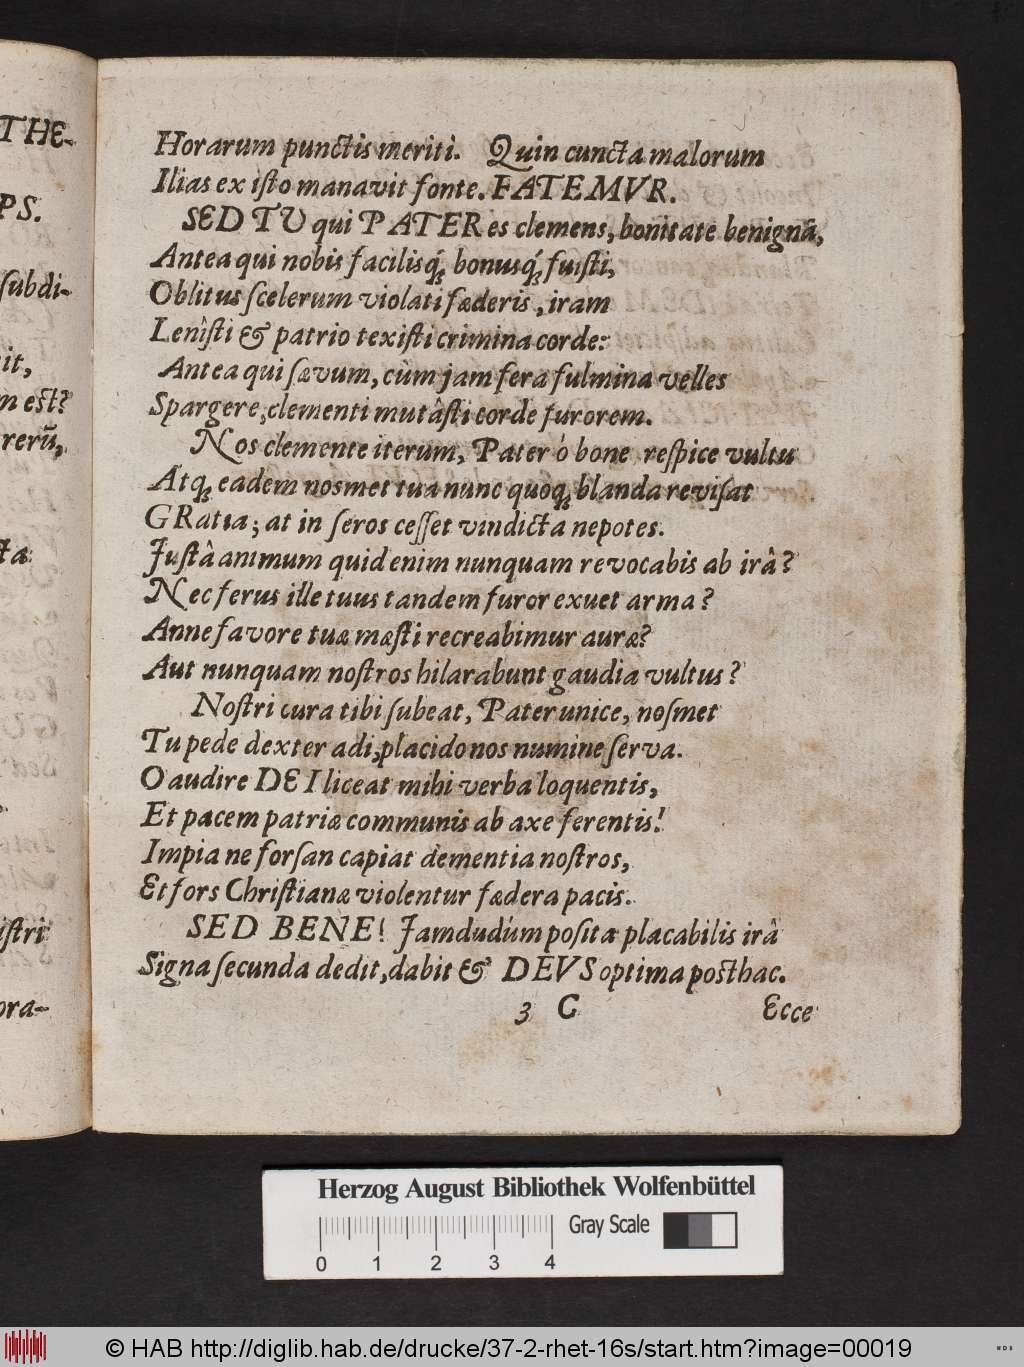 THE-
PS.
subdi-
it,
m est?
rerū,
ta
istri
ora-
Horarum punctis meriti. Quin cuncta malorum
Ilias ex isto manavit fonte. FATEMVR.
SED TU qui PATER es clemens, bonitate benignā,
Antea qui nobis facilisq́; bonusq́; fuisti,
Oblitus scelerum violati fæderis, iram
Lenîsti & patrio texisti crimina corde:
Antea qui sævum, cùm jam fera fulmina velles
Spargere, clementi mutâsti corde furorem.
Nos clemente iterum, Pater ò bone respice vultu
Atq; eadem nosmet tua nunc quoq; blanda revisat
GRatia; at in seros cesset vindicta nepotes.
Justâ animum quid enim nunquam revocabis ab irâ?
Nec ferus ille tuus tandem furor exuet arma?
Anne favore tuæ mæsti recreabimur auræ?
Aut nunquam nostros hilarabunt gaudia vultus?
Nostri cura tibi subeat, Pater unice, nosmet
Tu pede dexter adi, placido nos numine serva.
O audire DEI liceat mihi verba loquentis,
Et pacem patriæ communis ab axe ferentis!
Impia ne forsan capiat dementia nostros,
Et fors Christianæ violentur fædera pacis.
SED BENE! Jamdudùm posita placabilis irâ
Signa secunda dedit, dabit & DEVS optima posthac.
3 C Ecce
Herzog August Bibliothek Wolfenbüttel
Gray Scale
0 1 2 3 4
© HAB http://diglib.hab.de/drucke/37-2-rhet-16s/start.htm?image=00019